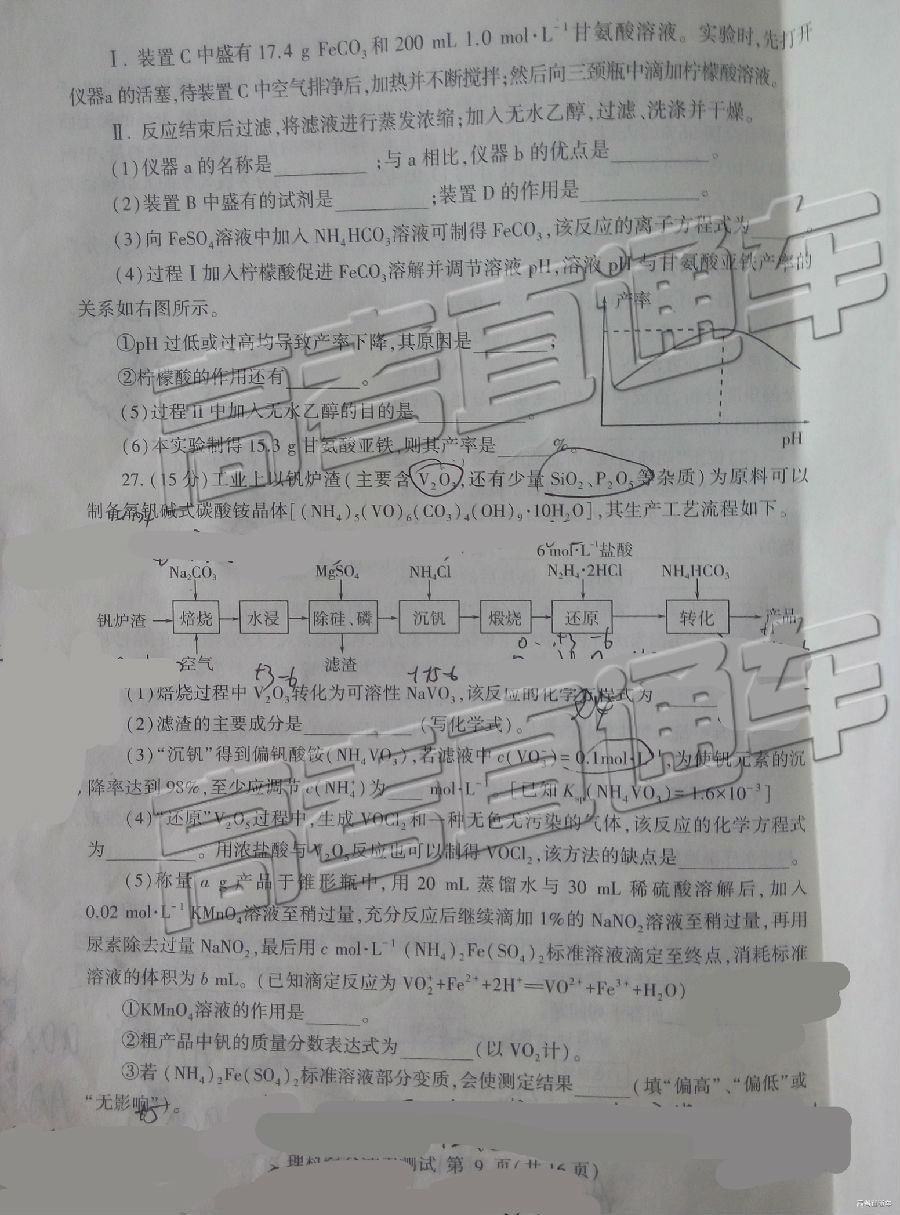 Ⅰ. 装置 C 中盛有 17.4 g FeCO₃ 和 200 mL 1.0 mol·L⁻¹ 甘氨酸溶液。实验时,先打开
仪器a 的活塞,待装置 C 中空气排净后,加热并不断搅拌;然后向三颈瓶中滴加柠檬酸溶液。
Ⅱ. 反应结束后过滤,将滤液进行蒸发浓缩;加入无水乙醇,过滤、洗涤并干燥。
(1)仪器 a 的名称是________;与 a 相比,仪器 b 的优点是________。
(2)装置 B 中盛有的试剂是________;装置 D 的作用是________。
(3)向 FeSO₄溶液中加入 NH₄HCO₃溶液可制得 FeCO₃,该反应的离子方程式为________。
(4)过程Ⅰ加入柠檬酸促进 FeCO₃溶解并调节溶液 pH,溶液 pH 与甘氨酸亚铁产率的
关系如右图所示。
产率
①pH 过低或过高均导致产率下降,其原因是________;
②柠檬酸的作用还有________。
(5)过程 ii 中加入无水乙醇的目的是________。
(6)本实验制得 15.3 g 甘氨酸亚铁,则其产率是______%。
pH
27.(15 分)工业上以钒炉渣(主要含 V₂O₃,还有少量 SiO₂、P₂O₅等杂质)为原料可以
制备氧钒碱式碳酸铵晶体[(NH₄)₅(VO)₆(CO₃)₄(OH)₉·10H₂O],其生产工艺流程如下。
6 mol·L⁻¹盐酸
Na₂CO₃ MgSO₄ NH₄Cl N₂H₄·2HCl NH₄HCO₃
钒炉渣 焙烧 水浸 除硅、磷 沉钒 煅烧 还原 转化 产品
空气 滤渣
(1)焙烧过程中 V₂O₃转化为可溶性 NaVO₃,该反应的化学方程式为________
(2)滤渣的主要成分是________(写化学式)。
(3)“沉钒”得到偏钒酸铵(NH₄VO₃),若滤液中 c(VO₃⁻)= 0.1mol·L⁻¹,为使钒元素的沉
降率达到 98%,至少应调节 c(NH₄⁺)为____ mol·L⁻¹。[已知 Kₛₚ(NH₄VO₃)= 1.6×10⁻³]
(4)“还原”V₂O₅过程中,生成 VOCl₂和一种无色无污染的气体,该反应的化学方程式
为________。用浓盐酸与 V₂O₅反应也可以制得 VOCl₂,该方法的缺点是________。
(5)称量 a g 产品于锥形瓶中,用 20 mL 蒸馏水与 30 mL 稀硫酸溶解后,加入
0.02 mol·L⁻¹ KMnO₄溶液至稍过量,充分反应后继续滴加 1%的 NaNO₂溶液至稍过量,再用
尿素除去过量 NaNO₂,最后用 c mol·L⁻¹ (NH₄)₂Fe(SO₄)₂标准溶液滴定至终点,消耗标准
溶液的体积为 b mL。(已知滴定反应为 VO₂⁺+Fe²⁺+2H⁺═VO²⁺+Fe³⁺+H₂O)
①KMnO₄溶液的作用是______。
②粗产品中钒的质量分数表达式为________(以 VO₂计)。
③若 (NH₄)₂Fe(SO₄)₂标准溶液部分变质,会使测定结果______(填“偏高”、“偏低”或
“无影响”)。
测试 第 9 页(共 16 页)
高考直通车
高考直通车